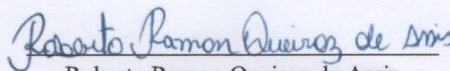 Roberto Ramon Queiroz de Assis
Roberto Ramon Queiroz de Assis